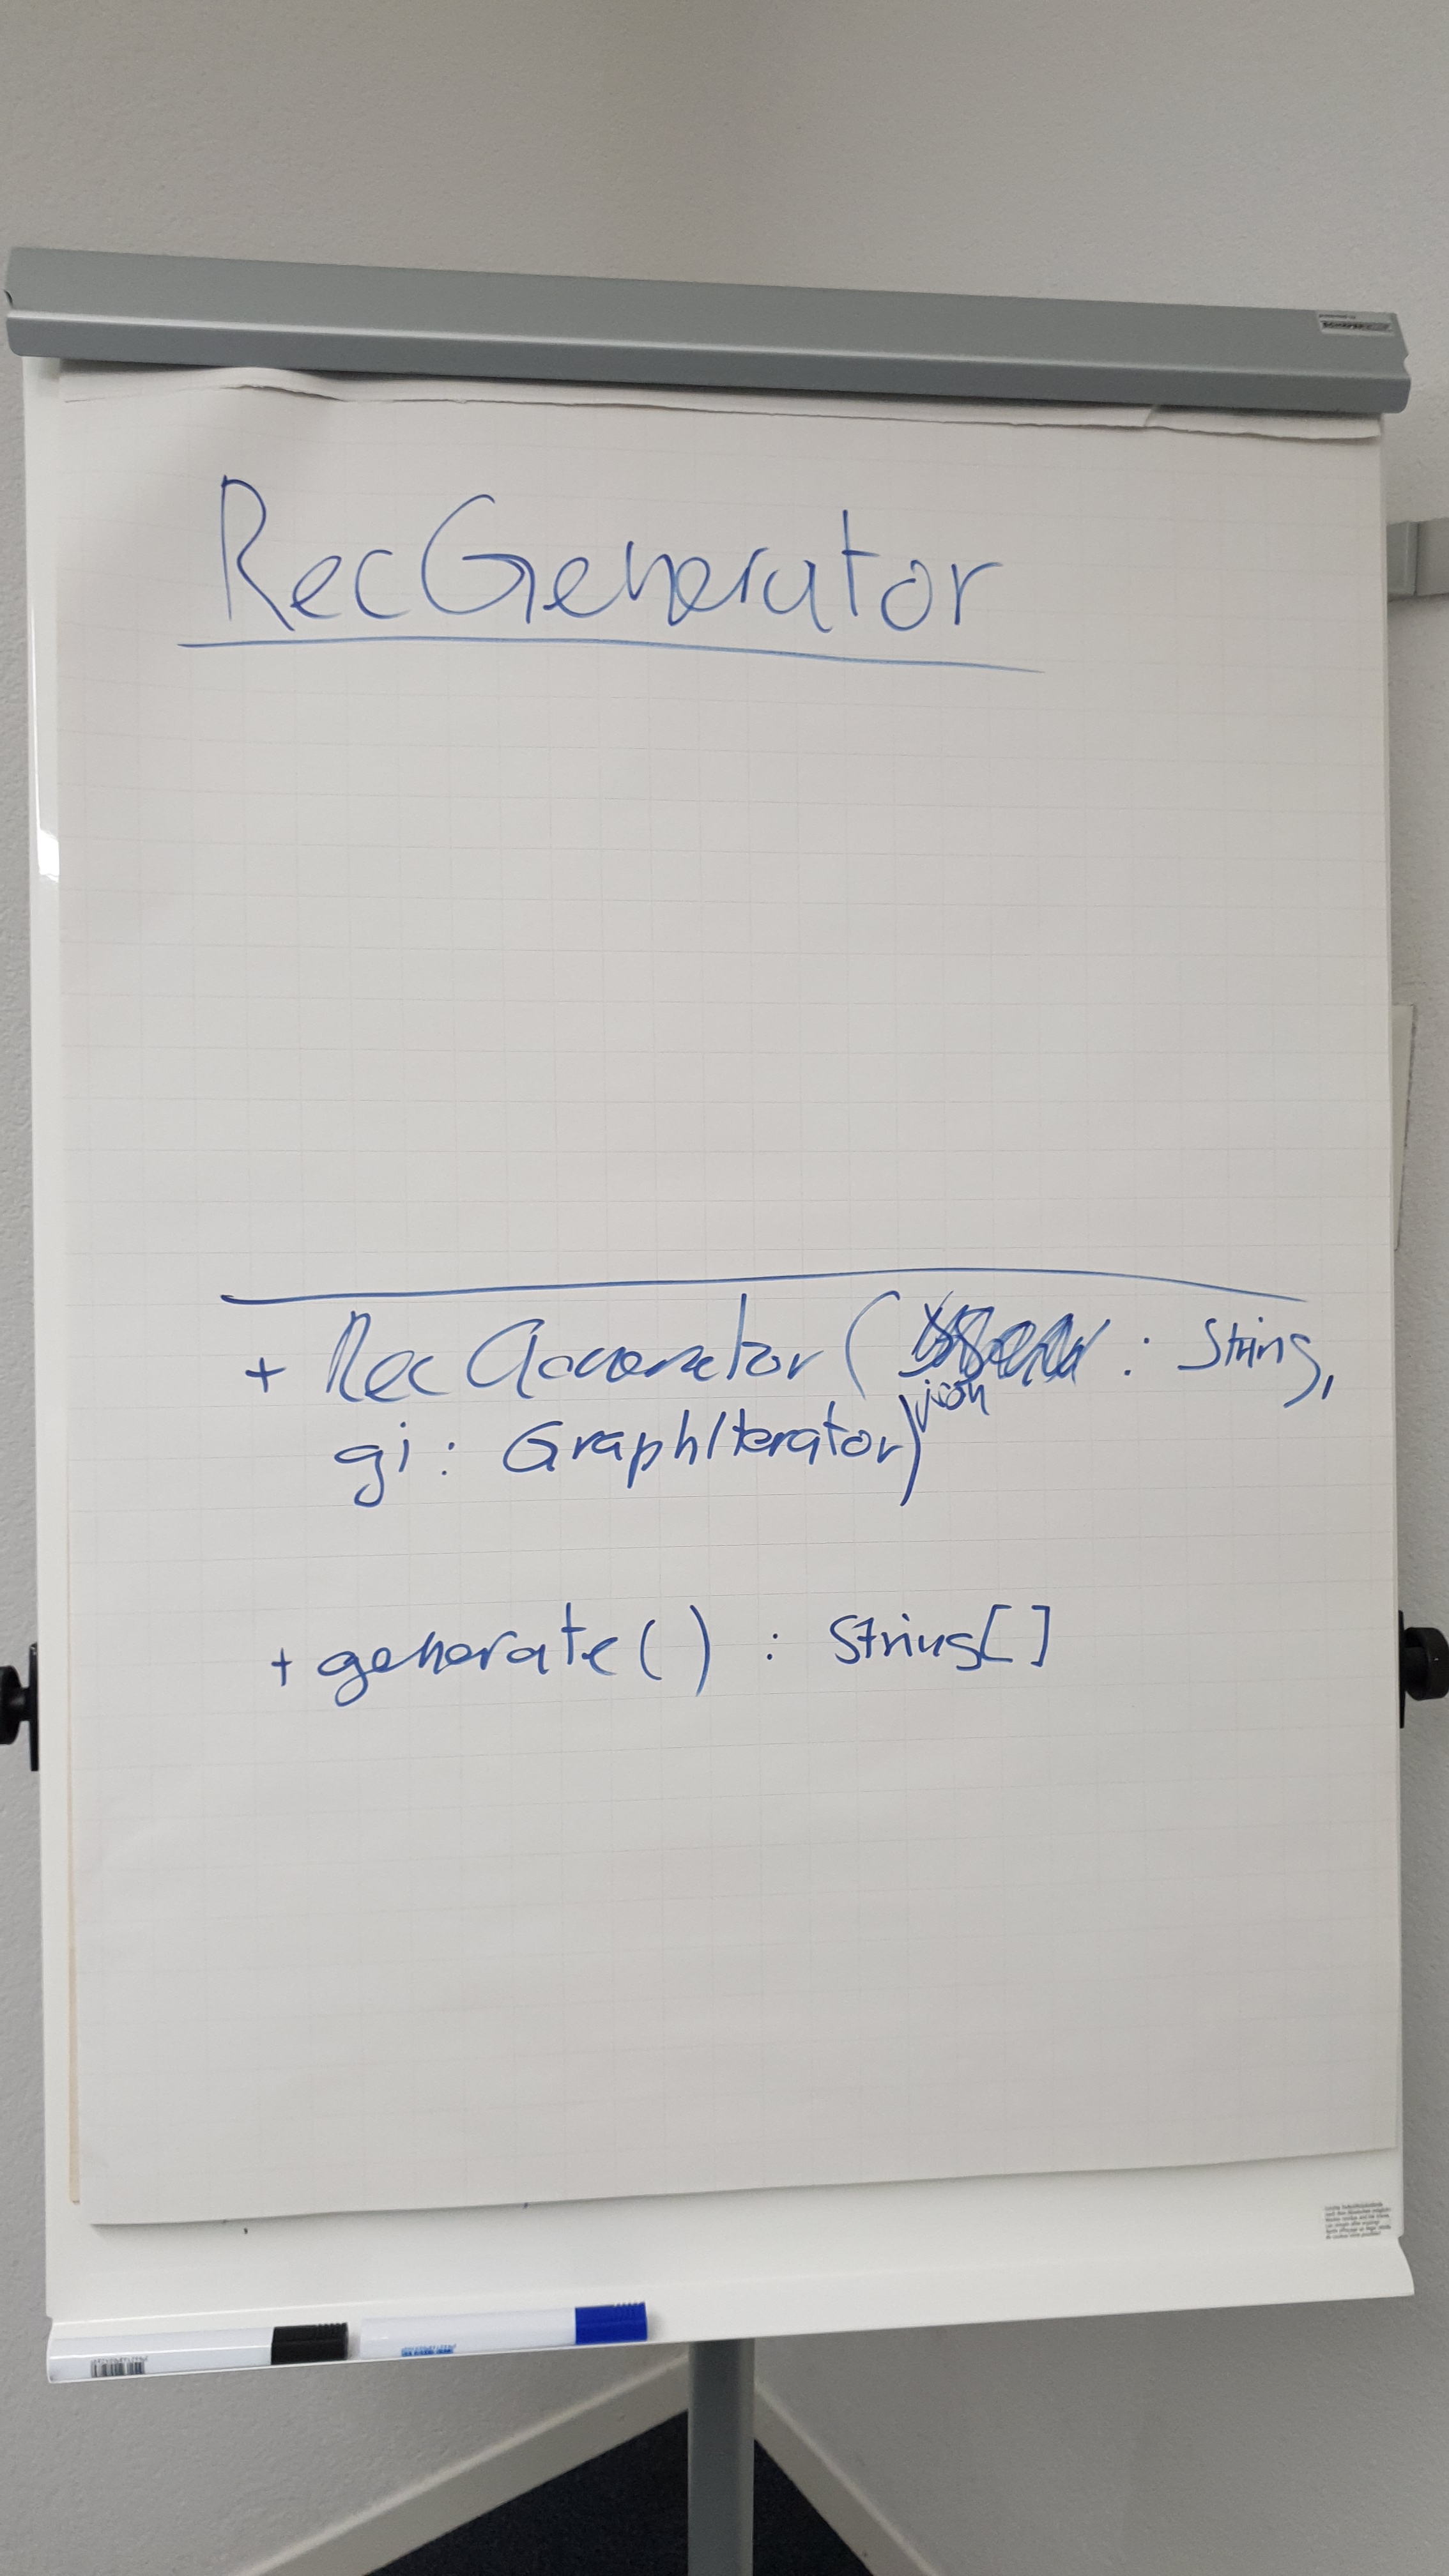 RecGenerator
+ RecGenerator ( : String,
json
gi : GraphIterator)
+ generate() : String[]